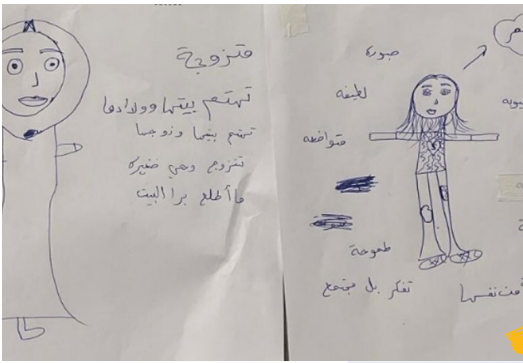 متزوجة
تهتم بيتها وولادها
تهتم بيتها وزوجها
تتزوج وهي صغيره
ما أطلع برا البيت
صبوره
لطيفه
متواضعه
طموحة
تفكر بل مجتمع
نفسها